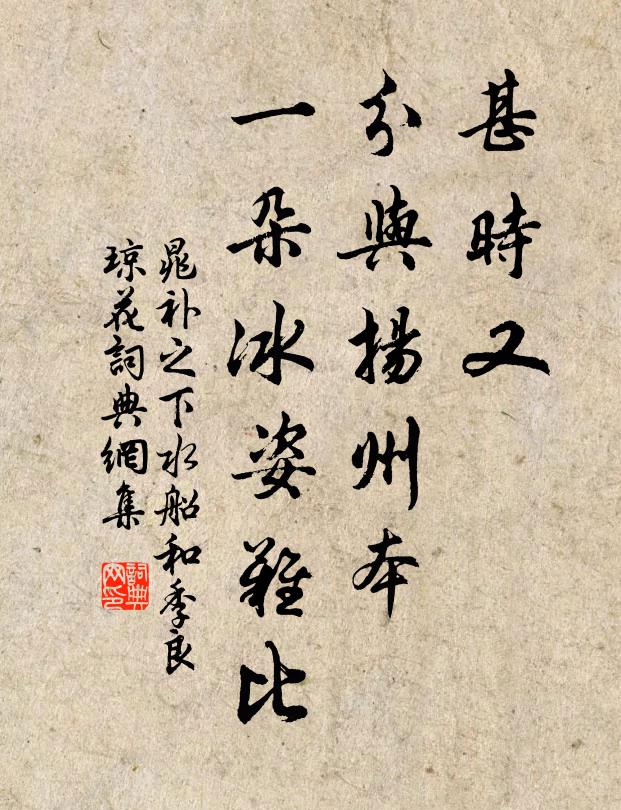 甚時又
分與揚州本
一朵冰姿難比
晁补之下水船和季良
琼花詞典網集
詞典网印